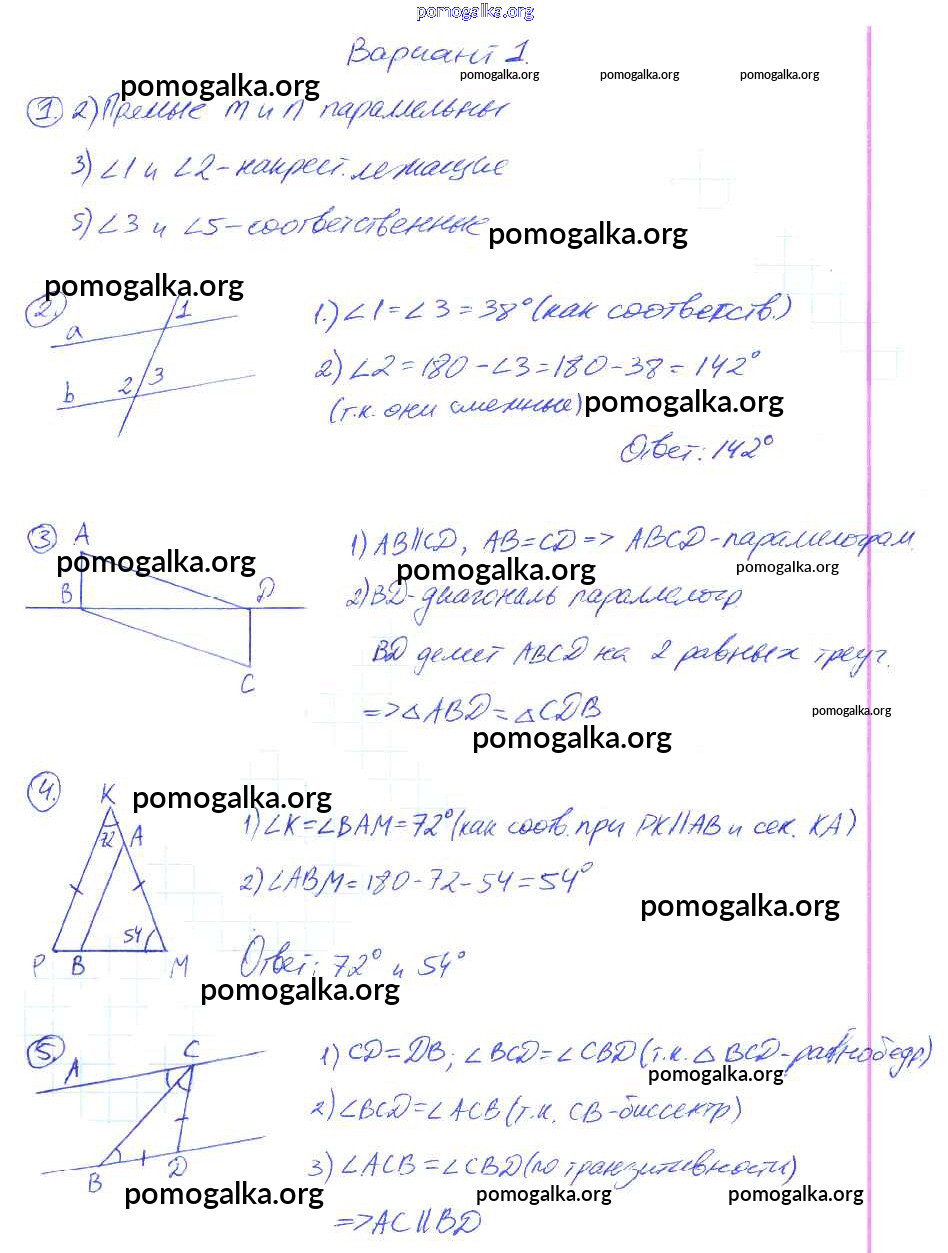 pomogalka.org
Вариант 1.
pomogalka.org pomogalka.org pomogalka.org pomogalka.org
1. 2) Прямые m и n параллельны
3) ∠1 и ∠2 - накрест. лежащие
5) ∠3 и ∠5 - соответственные
pomogalka.org
pomogalka.org
2.
a
b
1
2
3
1.) ∠1 = ∠3 = 38° (как соответств.)
2) ∠2 = 180 - ∠3 = 180 - 38 = 142°
(т.к. они смежные)
pomogalka.org
Ответ: 142°
3
A
B
D
C
pomogalka.org
1) AB||CD, AB = CD => ABCD - параллелограм.
pomogalka.org pomogalka.org
2) BD - диагональ параллелогр.
BD делит ABCD на 2 равных треуг.
=> △ABD = △CDB
pomogalka.org
pomogalka.org
4.
K
72
A
54
P B M
pomogalka.org
1) ∠K = ∠BAM = 72° (как соотв. при PK||AB и сек. KA)
2) ∠ABM = 180 - 72 - 54 = 54°
pomogalka.org
Ответ: 72° и 54°
pomogalka.org
5.
A
C
B
D
1) CD = DB; ∠BCD = ∠CBD (т.к. △ BCD - равнобедр)
pomogalka.org
2) ∠BCD = ∠ACB (т.к. CB - биссектр)
3) ∠ACB = ∠CBD (по транзитивности)
pomogalka.org pomogalka.org pomogalka.org
=> AC||BD